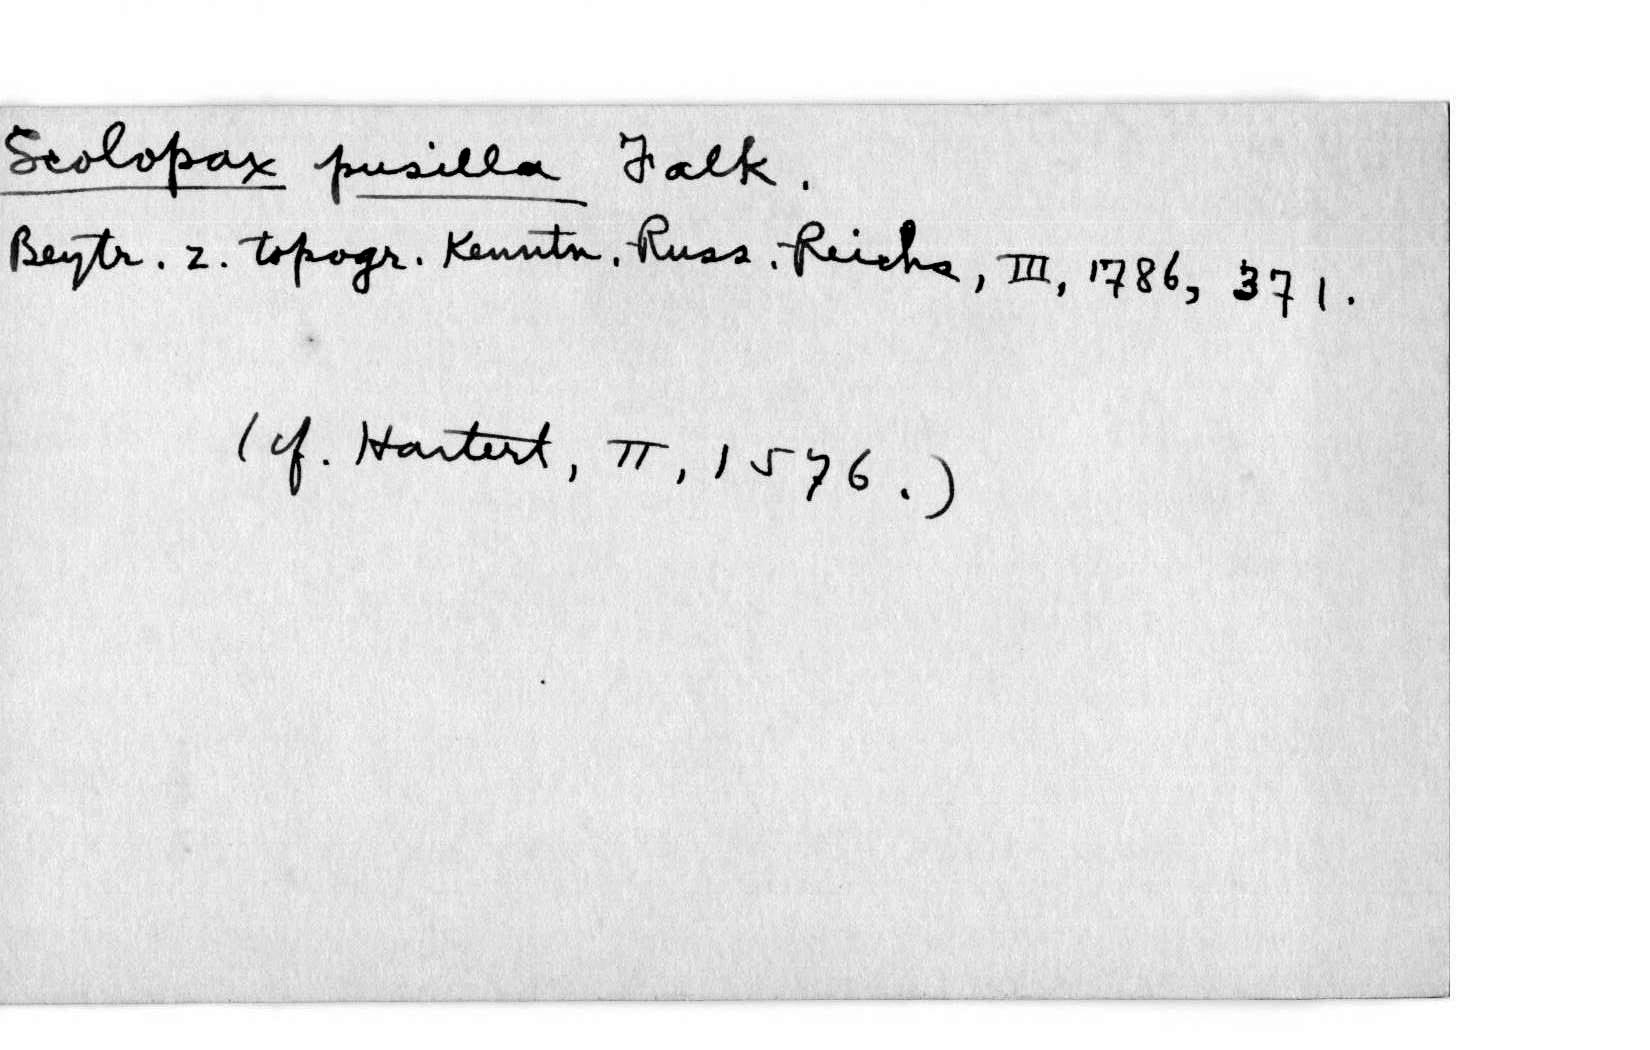 Scolopax pusilla Falk.
Beytr. z. topogr. Kenntn. Russ. Reichs, III, 1786, 371.
(cf. Hartert, II, 1576.)